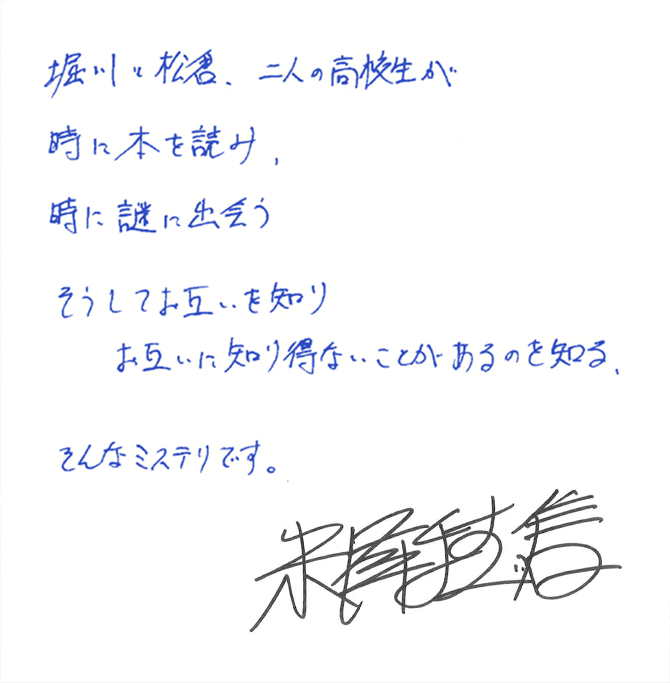 堀川と松倉、二人の高校生が
時に本を読み、
時に謎に出会う
そうしてお互いを知り
お互いに知り得ないことがあるのを知る、
そんなミステリです。
米澤穂信